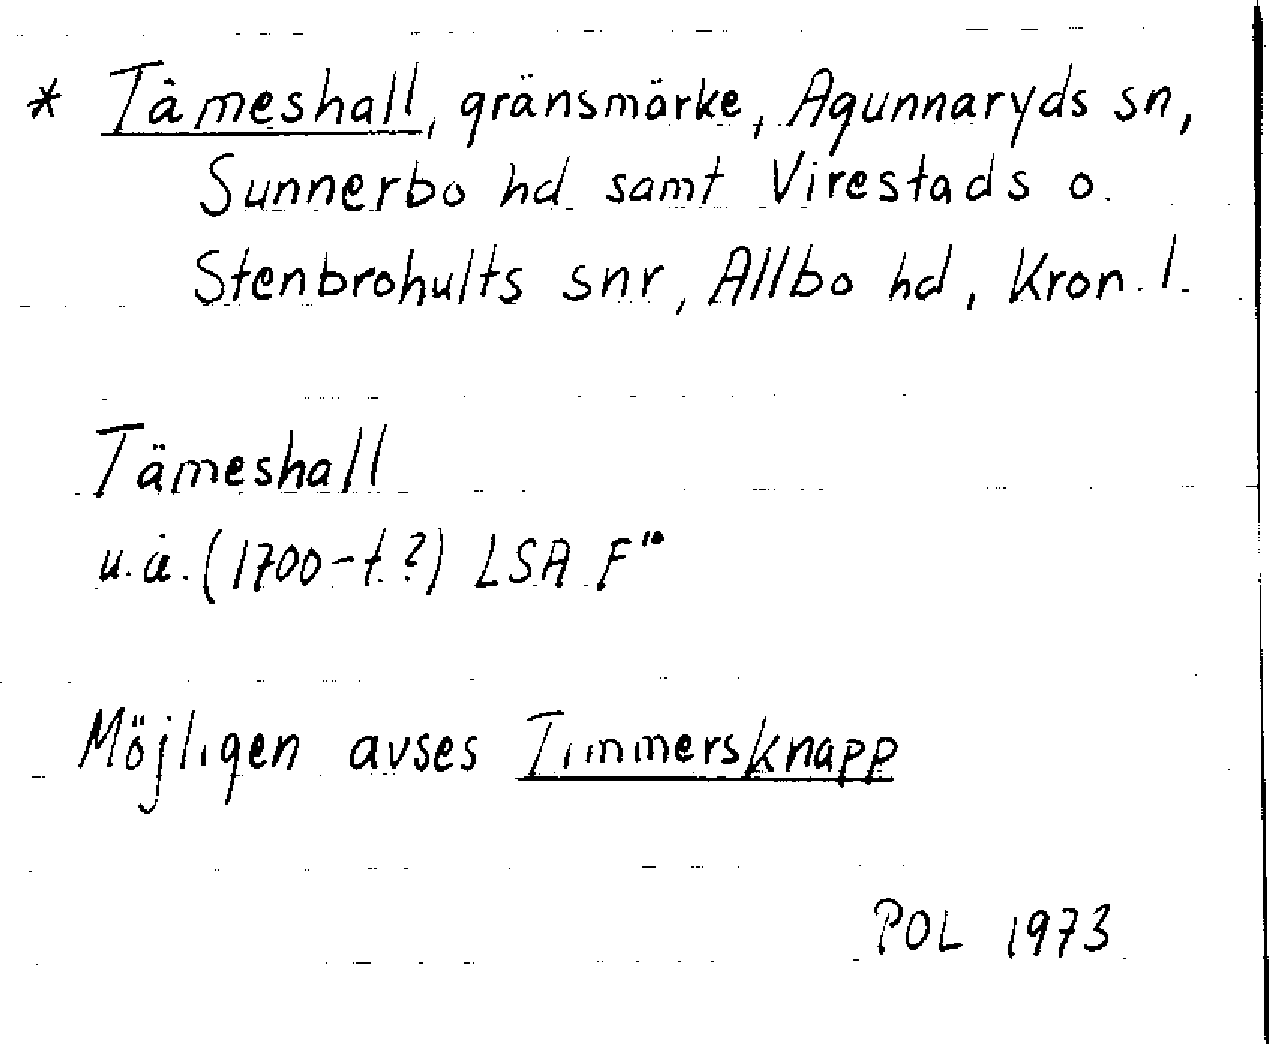 * Tämeshall, gränsmärke, Agunnaryds sn,
Sunnerbo hd samt Virestads o.
Stenbrohults snr, Allbo hd, Kron. l.
Tämeshall
u.å. (1700-t.?) LSA F"⁰
Möjligen avses Timmersknapp
POL 1973